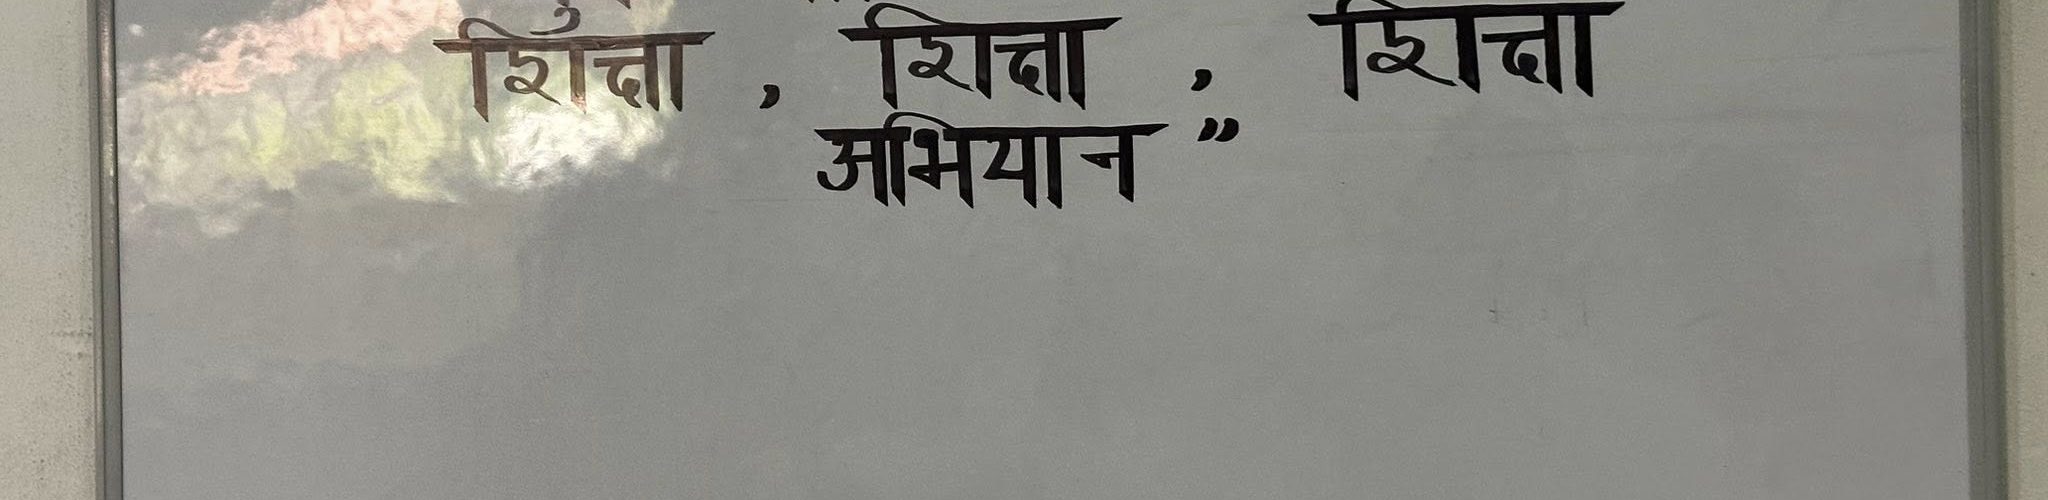 शिक्षा , शिक्षा , शिक्षा
अभियान ”